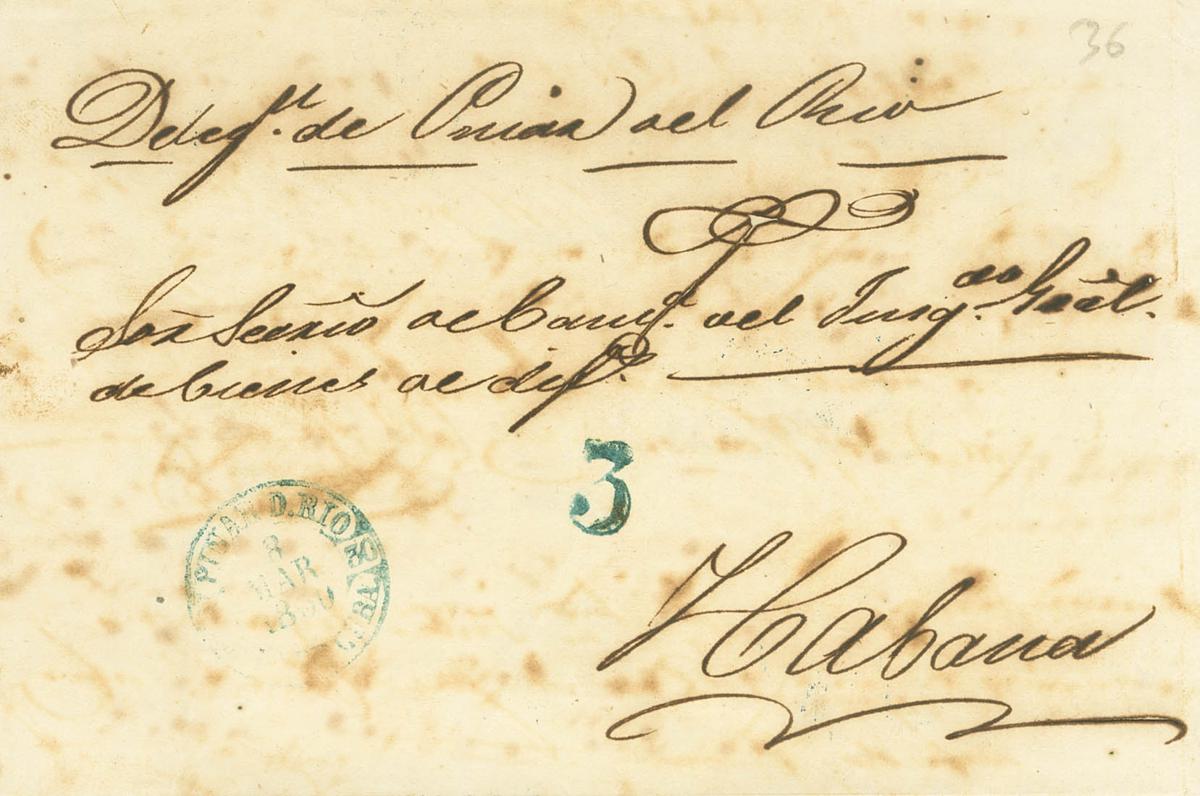 36
Delegn. de Pinar del Rio
Sor Secrio de Camª. del Juzgdo. Gral.
de bienes de difs.
3
PINAR D. RIO
CUBA
8
MAR
1850
Habana